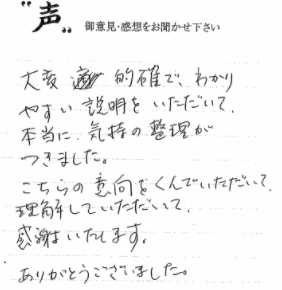 "声" 御意見・感想をお聞かせ下さい
大変 的確で、わかり
やすい説明をいただいて、
本当に、気持の整理が
つきました。
こちらの意向をくんでいただいて、
理解していただいて、
感謝いたします。
ありがとうございました。